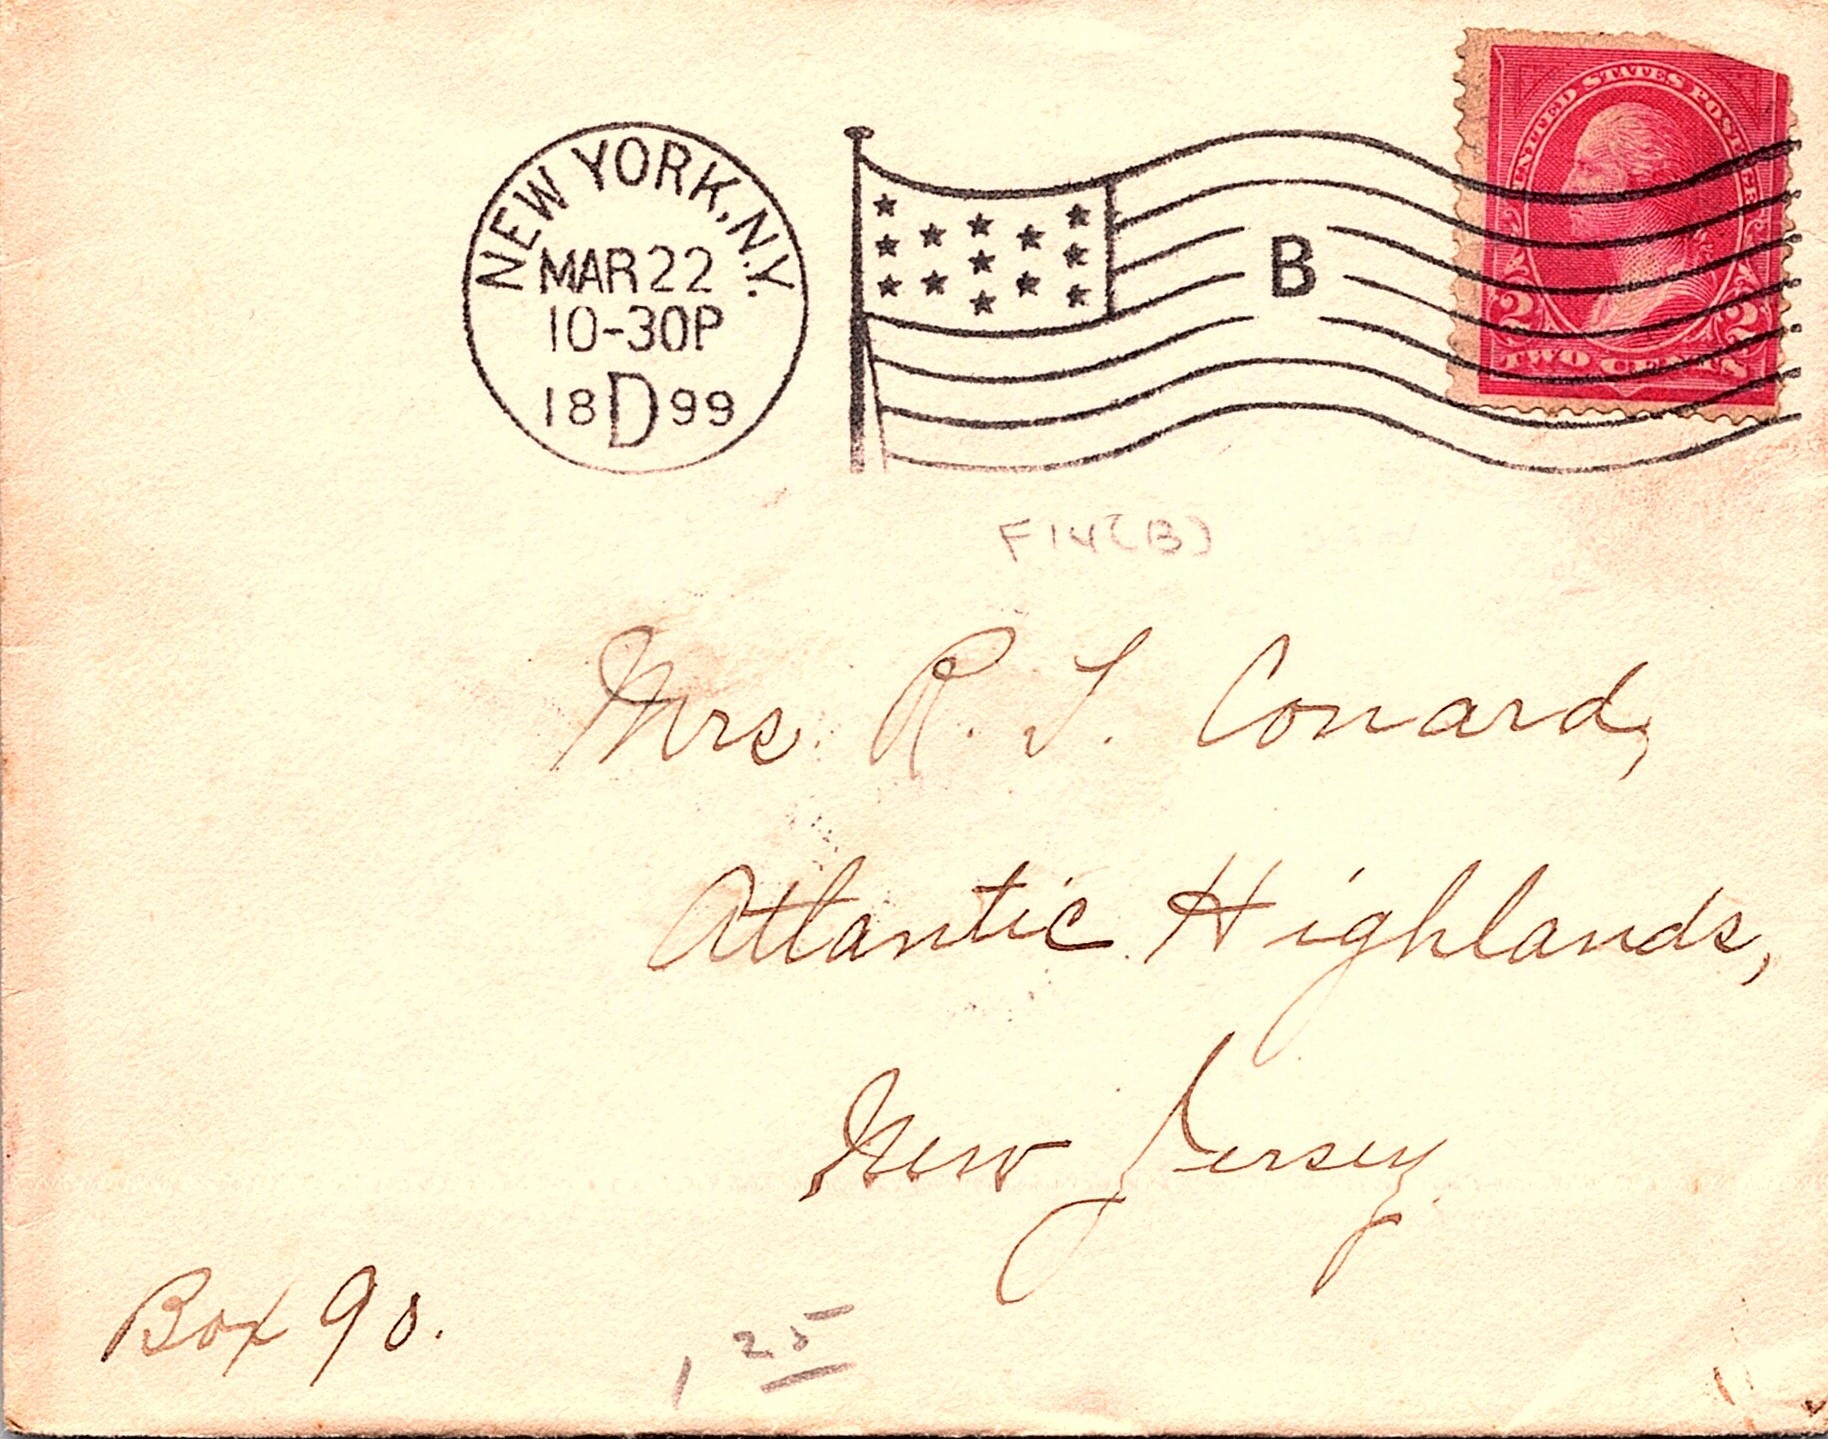 NEW YORK, N.Y.
MAR 22
10-30P
18 D 99
B
UNITED STATES POSTAGE
2 2
TWO CENTS
F14(B)
Mrs. R. T. Conard,
Atlantic Highlands,
New Jersey.
Box 90.
1 25